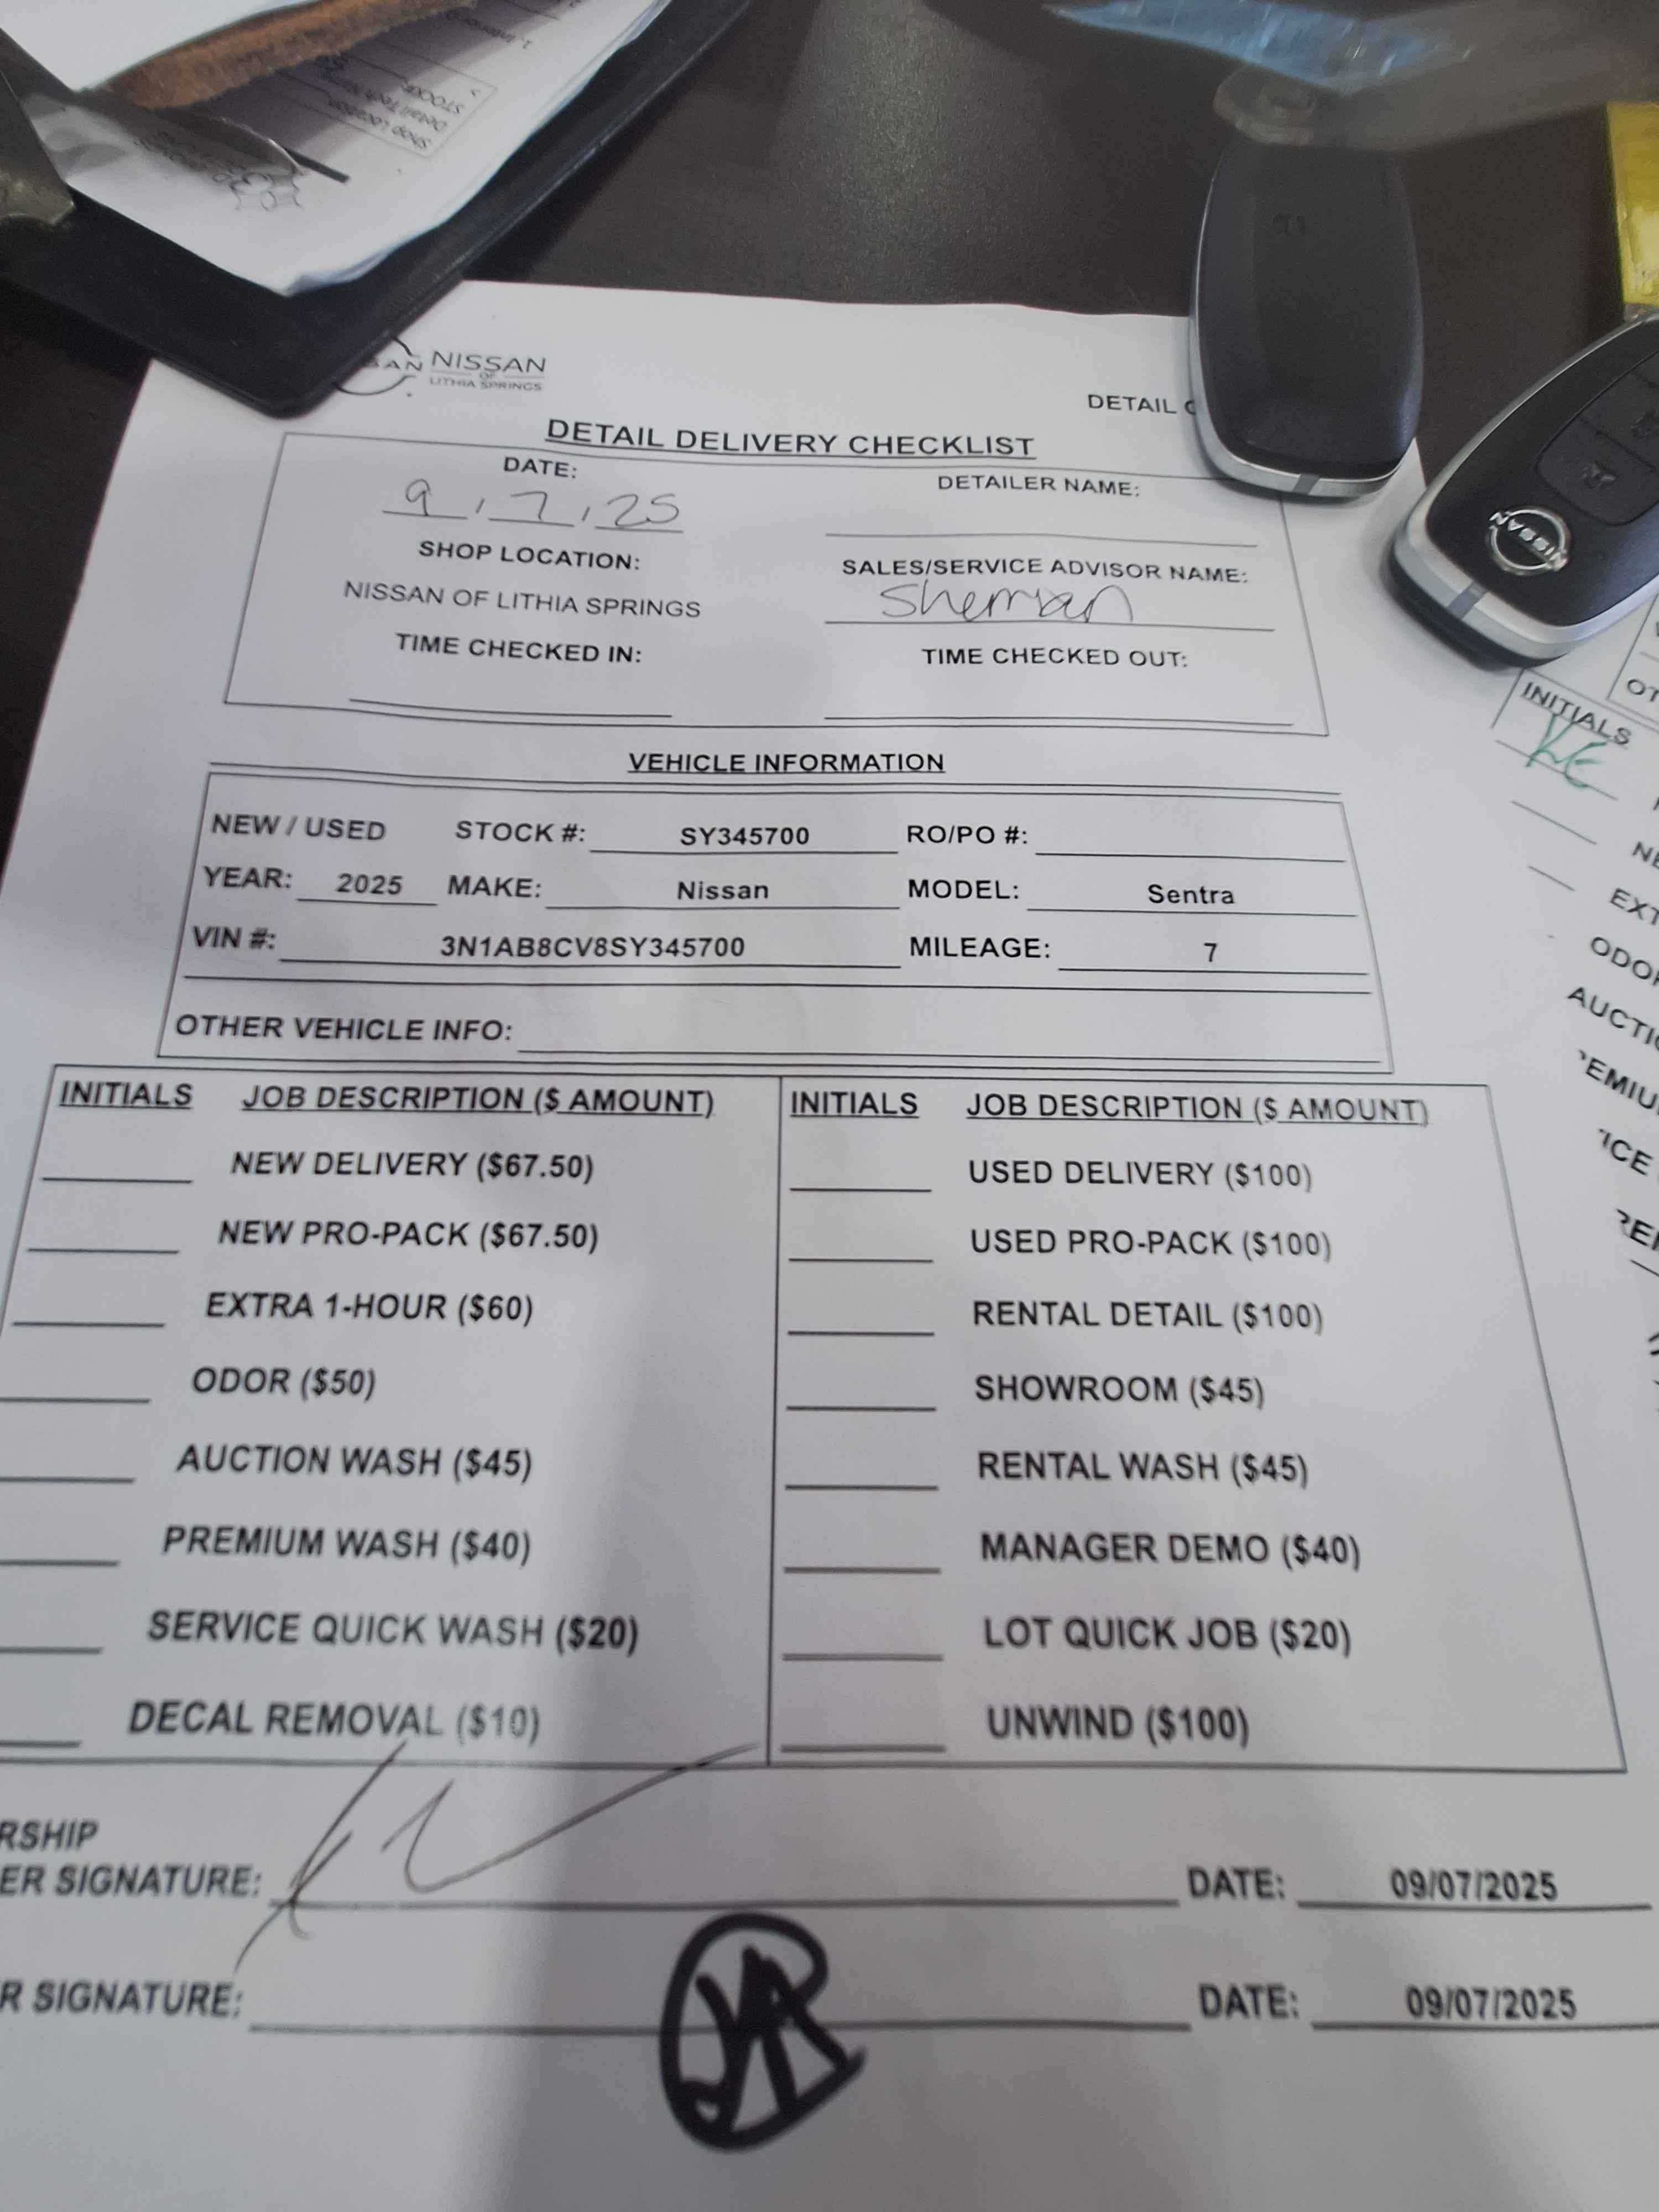 Shop Location
Detail Tech N
STOCK#:
1. Interior
NISSAN
OF
LITHIA SPRINGS
DETAIL
DETAIL DELIVERY CHECKLIST
DATE: DETAILER NAME:
9, 7, 25
SHOP LOCATION: SALES/SERVICE ADVISOR NAME:
NISSAN OF LITHIA SPRINGS Sherman
TIME CHECKED IN: TIME CHECKED OUT:
VEHICLE INFORMATION
NEW / USED STOCK #: SY345700 RO/PO #:
YEAR: 2025 MAKE: Nissan MODEL: Sentra
VIN #: 3N1AB8CV8SY345700 MILEAGE: 7
OTHER VEHICLE INFO:
INITIALS JOB DESCRIPTION ($ AMOUNT) INITIALS JOB DESCRIPTION ($ AMOUNT)
NEW DELIVERY ($67.50) USED DELIVERY ($100)
NEW PRO-PACK ($67.50) USED PRO-PACK ($100)
EXTRA 1-HOUR ($60) RENTAL DETAIL ($100)
ODOR ($50) SHOWROOM ($45)
AUCTION WASH ($45) RENTAL WASH ($45)
PREMIUM WASH ($40) MANAGER DEMO ($40)
SERVICE QUICK WASH ($20) LOT QUICK JOB ($20)
DECAL REMOVAL ($10) UNWIND ($100)
RSHIP
ER SIGNATURE: DATE: 09/07/2025
R SIGNATURE: DATE: 09/07/2025
NISSAN
OT
INITIALS
KE
NE
EXT
ODOR
AUCTIO
EMIU
ICE